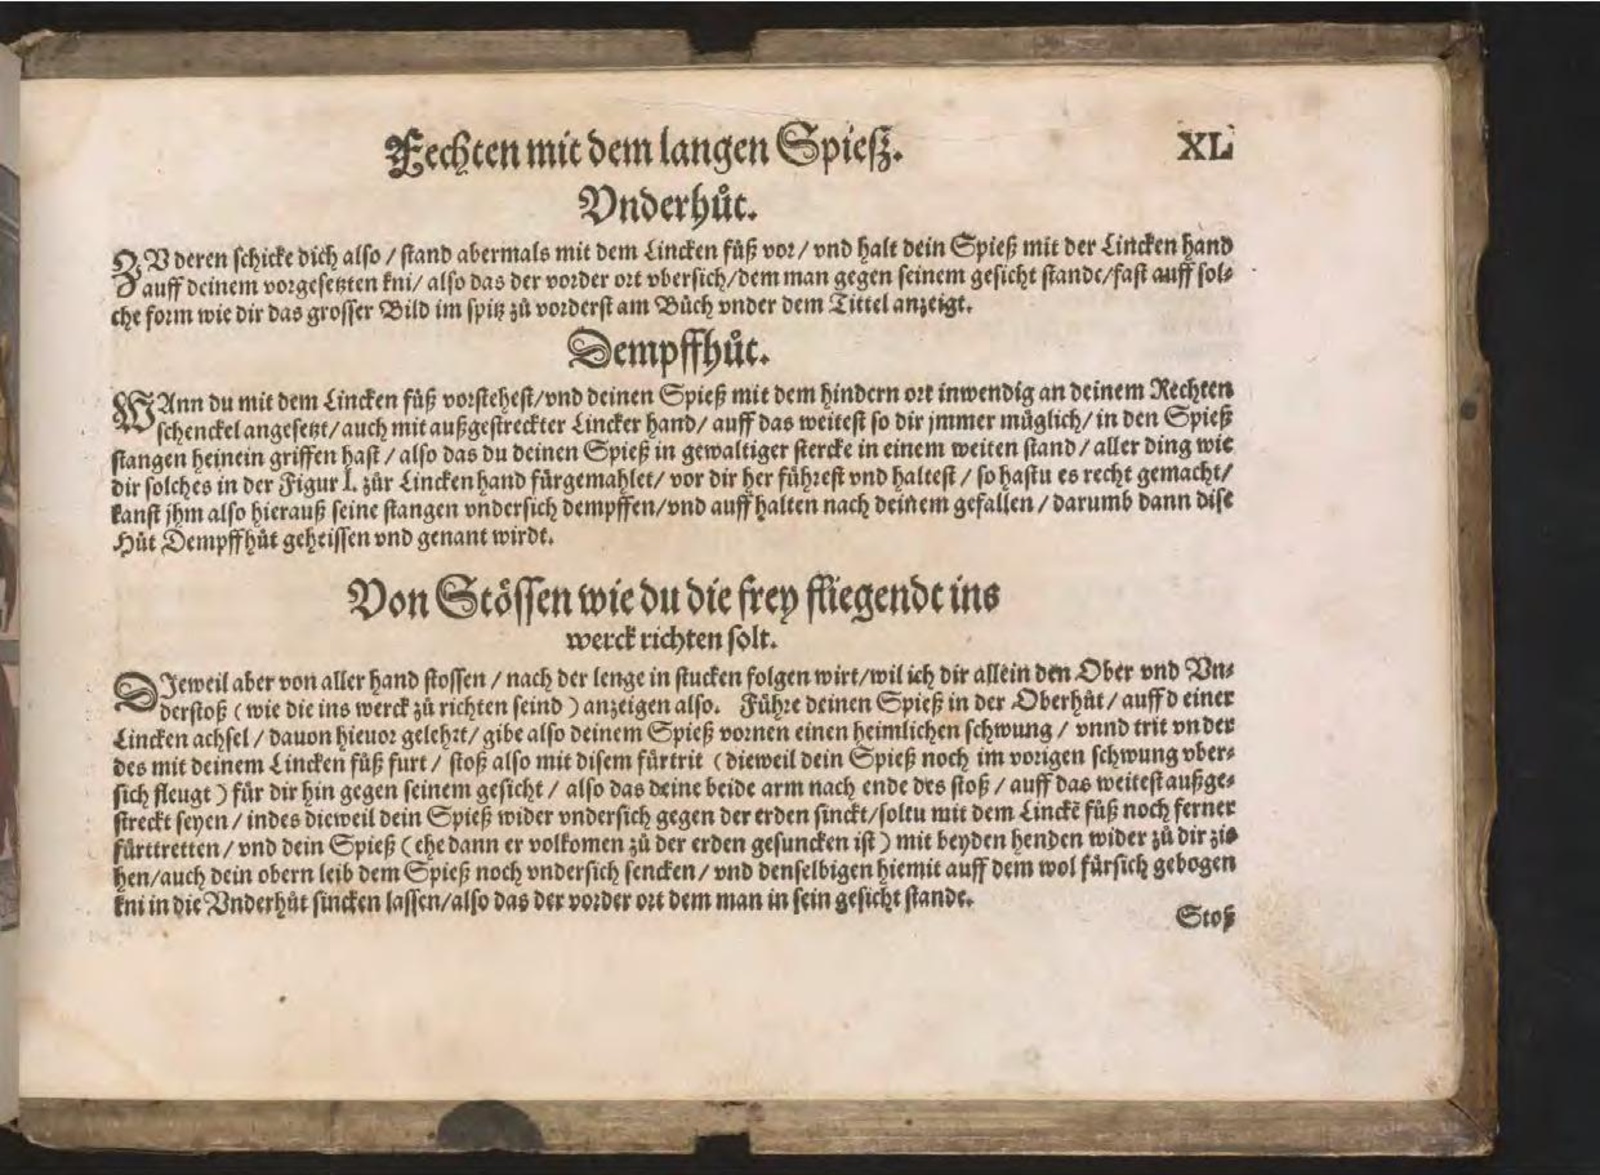 Fechten mit dem langen Spiesz.
XL
Vnderhůt.
ZV deren schicke dich also / stand abermals mit dem Lincken fůß vor / vnd halt dein Spieß mit der Lincken hand
auff deinem vorgesetzten kni / also das der vorder ort vbersich / dem man gegen seinem gesicht stande / fast auff sol⸗
che form wie dir das grosser Bild im spitz zů vorderst am Bůch vnder dem Tittel anzeigt.
Dempffhůt.
WAnn du mit dem Lincken fůß vorstehest / vnd deinen Spieß mit dem hindern ort inwendig an deinem Rechten
schenckel angesetzt / auch mit außgestreckter Lincker hand / auff das weitest so dir jmmer müglich / in den Spieß
stangen heinein griffen hast / also das du deinen Spieß in gewaltiger stercke in einem weiten stand / aller ding wie
dir solches in der Figur I. zůr Lincken hand fürgemahlet / vor dir her führest vnd haltest / so hastu es recht gemacht /
kanst jhm also hierauß seine stangen vndersich dempffen / vnd auff halten nach deinem gefallen / darumb dann dise
Hůt Dempffhůt geheissen vnd genant wirdt.
Von Stössen wie du die frey fliegendt ins
werck richten solt.
DJeweil aber von aller hand stossen / nach der lenge in stucken folgen wirt / wil ich dir allein den Ober vnd Vn⸗
derstoß ( wie die ins werck zů richten seind ) anzeigen also. Führe deinen Spieß in der Oberhůt / auff d einer
Lincken achsel / dauon hieuor gelehrt / gibe also deinem Spieß vornen einen heimlichen schwung / vnnd trit vnder
des mit deinem Lincken fůß furt / stoß also mit disem fürtrit ( dieweil dein Spieß noch im vorigen schwung vber⸗
sich fleugt ) für dir hin gegen seinem gesicht / also das deine beide arm nach ende des stoß / auff das weitest außge⸗
streckt seyen / indes dieweil dein Spieß wider vndersich gegen der erden sinckt / soltu mit dem Linckē fůß noch ferner
fürttretten / vnd dein Spieß ( ehe dann er volkomen zů der erden gesuncken ist ) mit beyden henden wider zů dir zie⸗
hen / auch dein obern leib dem Spieß noch vndersich sencken / vnd denselbigen hiemit auff dem wol fürsich gebogen
kni in die Vnderhůt sincken lassen / also das der vorder ort dem man in sein gesicht stande.
Stoß